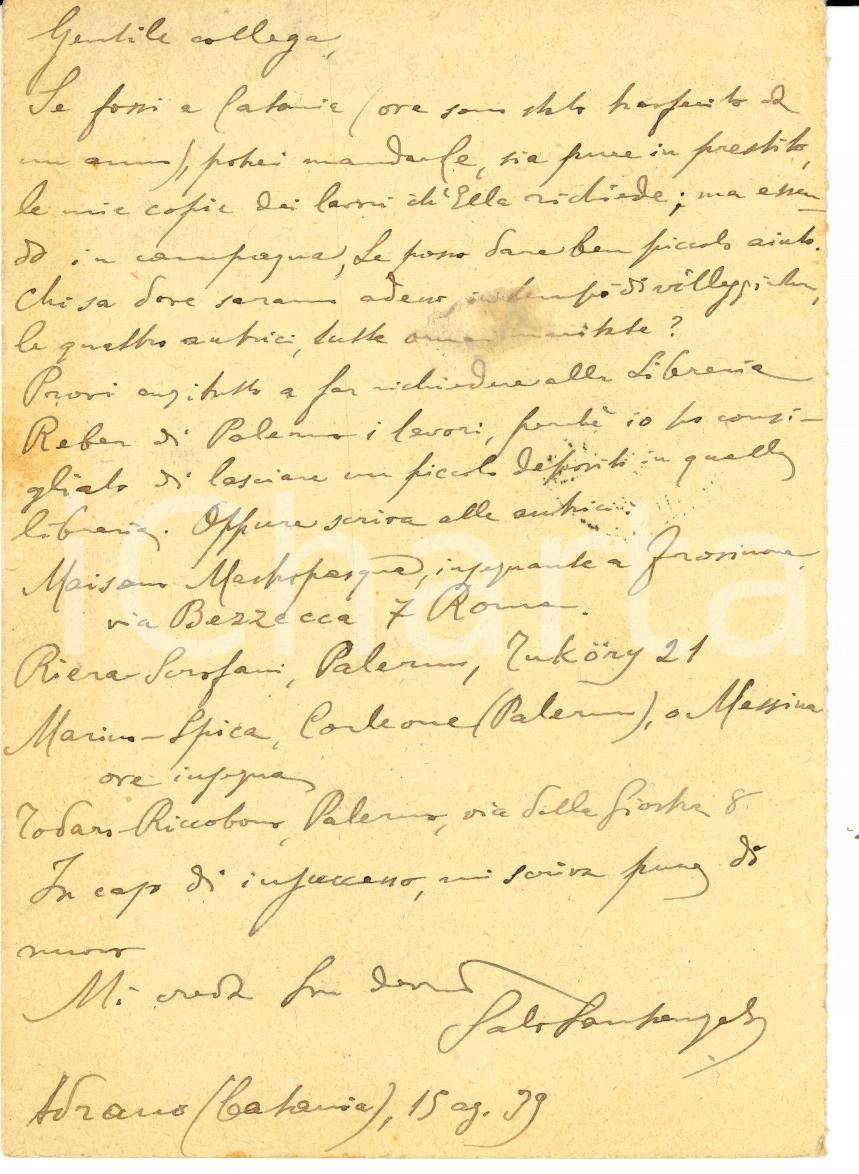 Gentile collega,
Se fossi a Catania (ove sono stato trasferito da
un anno), potrei mandarLe, sia pure in prestito,
le mie copie dei lavori ch'Ella richiede; ma essen-
do in campagna, Le posso dare ben piccolo aiuto.
Chi sa dove saranno adesso, in tempo di villeggiatura,
le quattro autrici, tutte ormai maritate?
Provi anzitutto a far richiedere alla Libreria
Reber di Palermo i lavori, perché io ho consi-
gliato di lasciare un piccolo deposito in quella
libreria. Oppure scriva alle autrici:
Maisano Mastropasqua, insegnante a Frosinone,
via Bezzecca 7 Roma.
Riera Scrofani, Palermo, Tuköry 21
Marino-Spica, Corleone (Palermo), o Messina
ove insegna
Todaro-Riccobono, Palermo, via della Giostra 8
In caso di insuccesso, mi scriva pure di
nuovo
Mi creda Suo dev.mo
Santangelo
Adrano (Catania), 15 ag. 39
iCharta